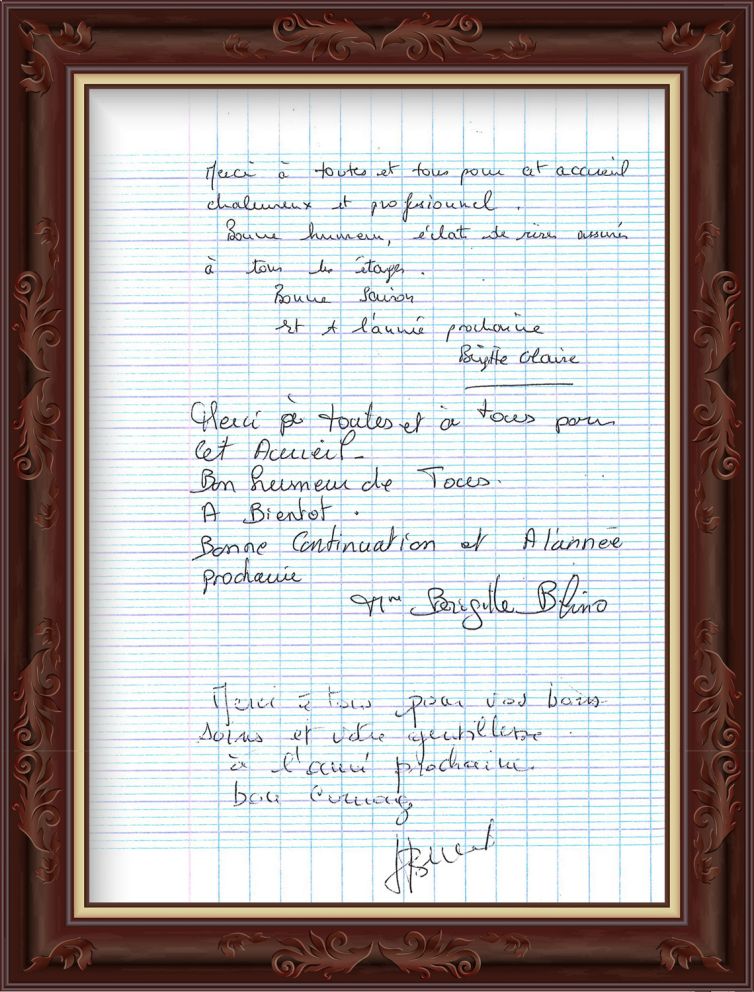 Merci à toutes et tous pour cet accueil
chaleureux et profesionnel.
Bonne humeur, éclat de rires assurés
à tous les étages.
Bonne saison
et A l'année prochaine
Brigitte Claire
Merci à toutes et à tous pour
cet Accueil_
Bon humeur de Toces.
A Bientot.
Bonne Continuation et A l'année
prochaine
Mme Brigitte
Merci à tous pour vos bons
soins et votre gentillesse.
à l'anné prochaine.
bon